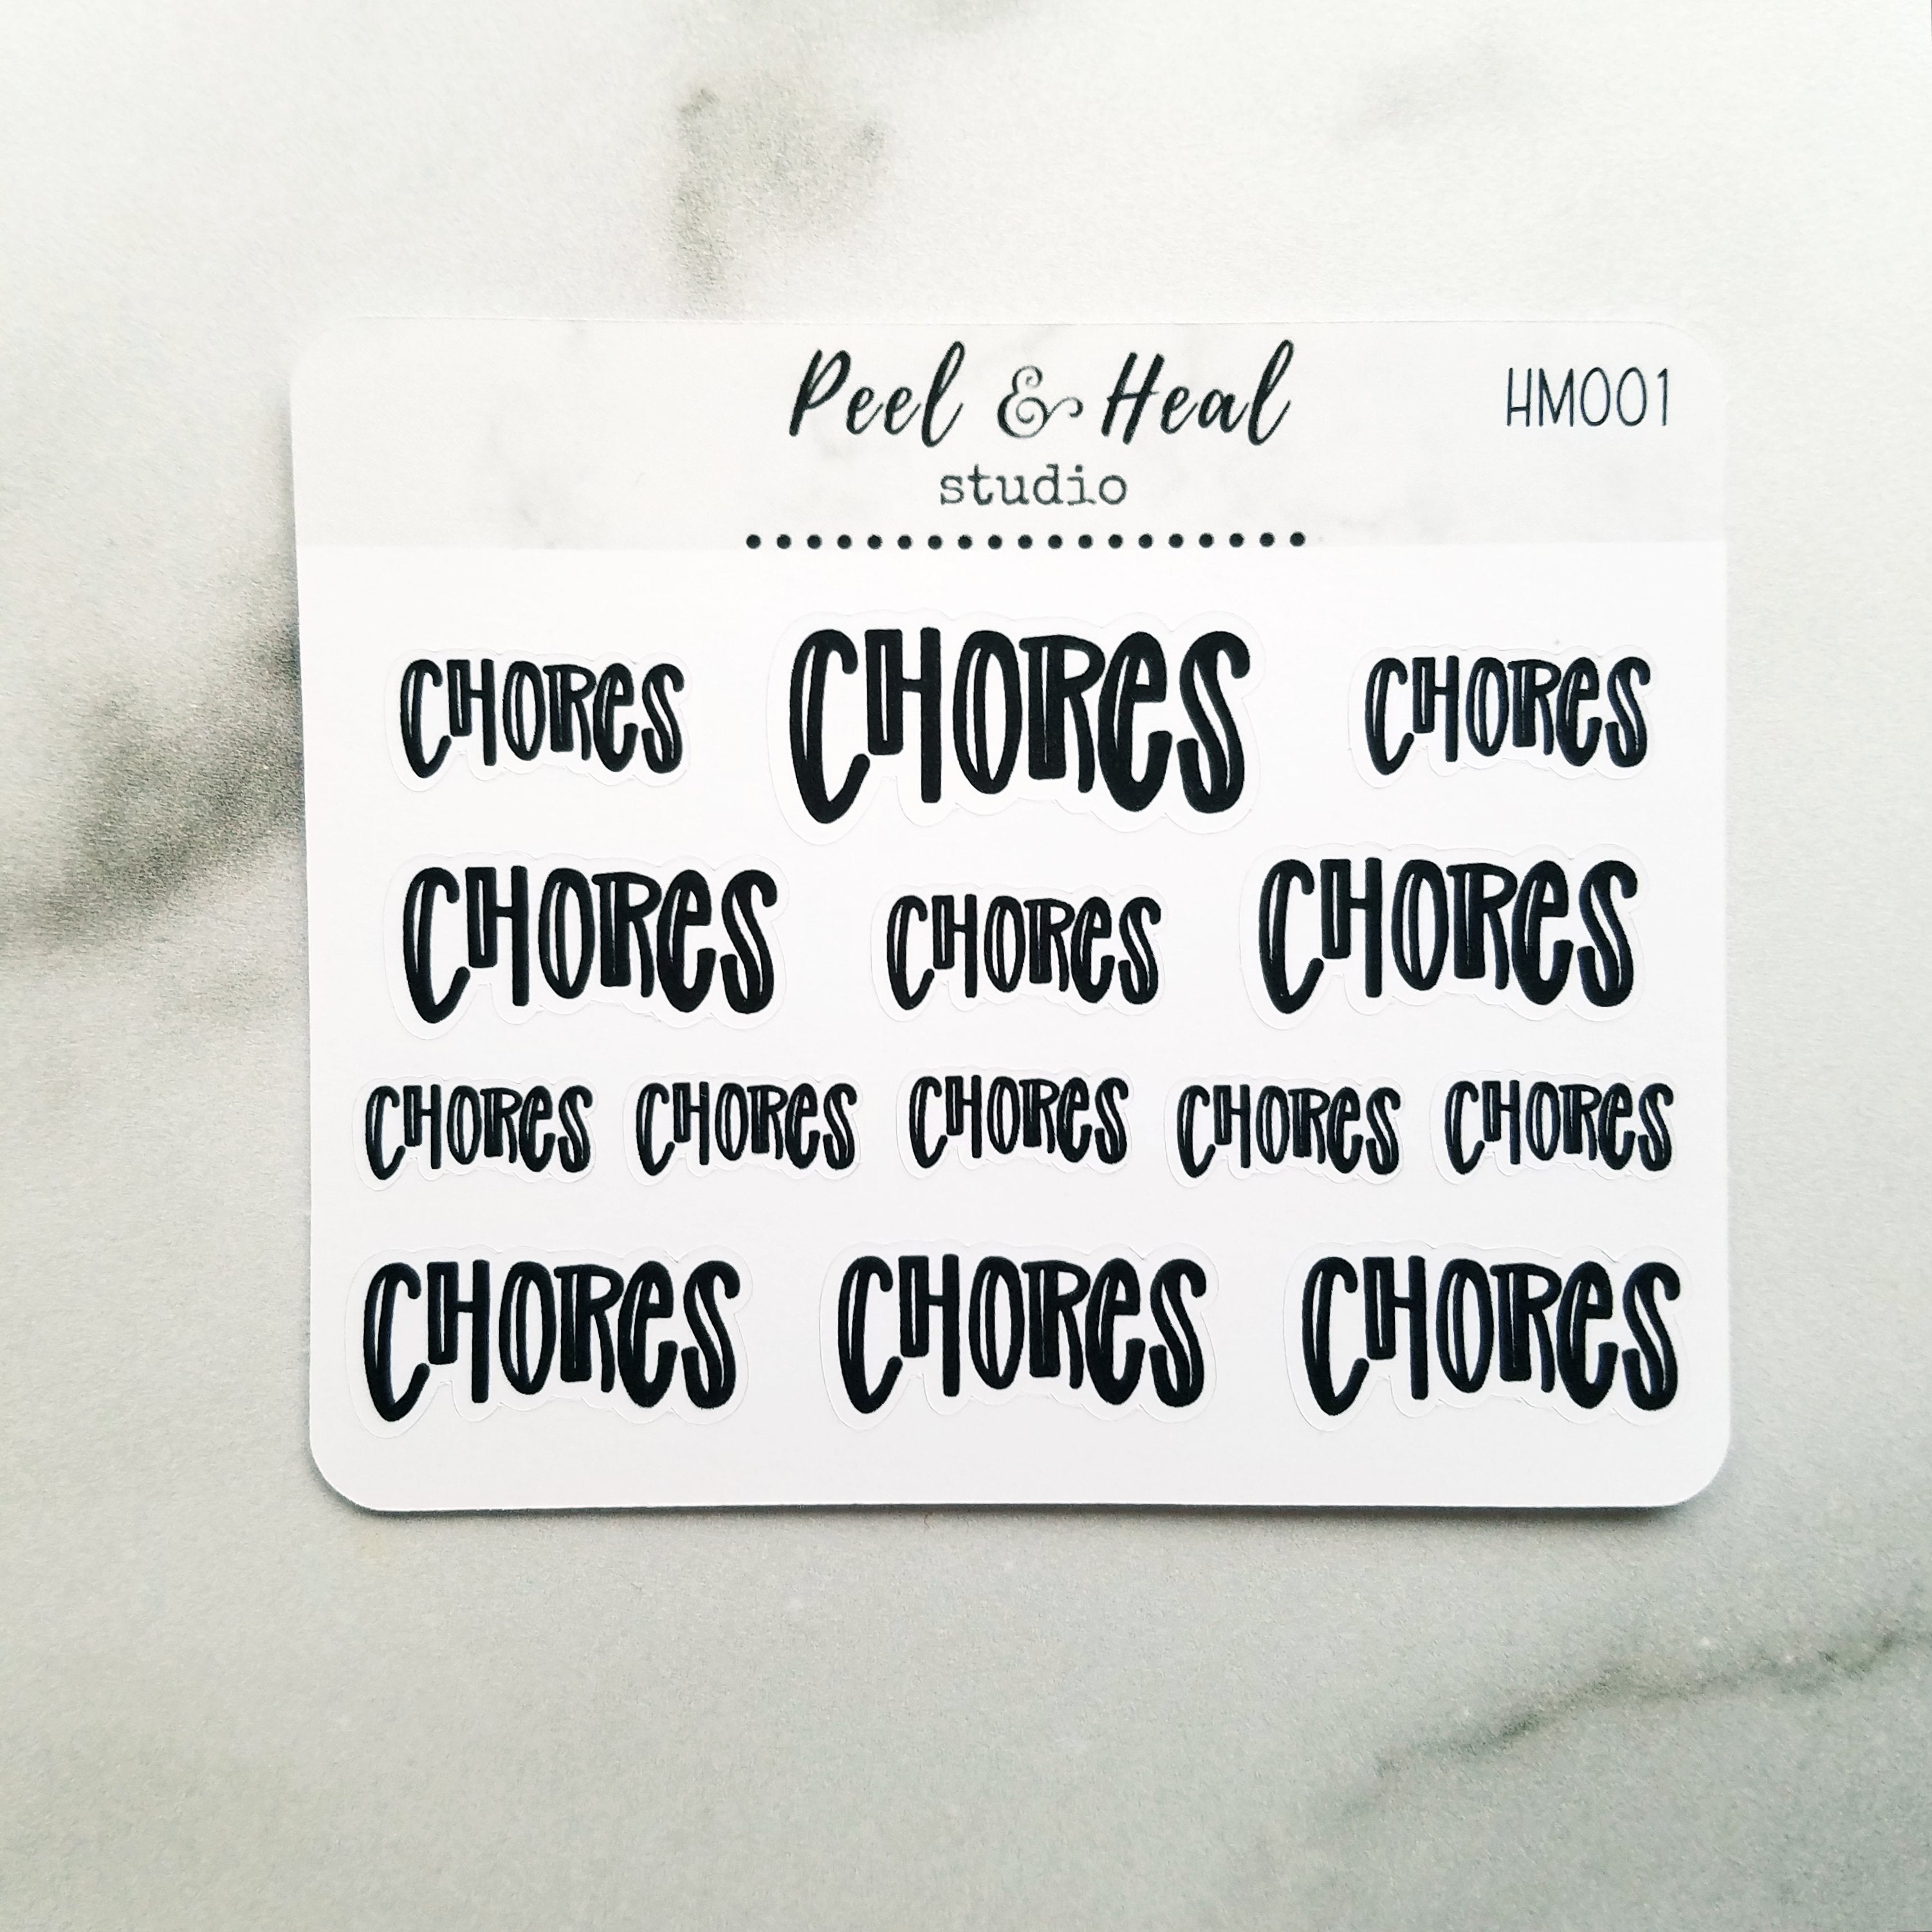 Peel & Heal
HM001
studio
CHORES CHORES CHORES
CHORES CHORES CHORES
CHORES CHORES CHORES CHORES CHORES
CHORES CHORES CHORES